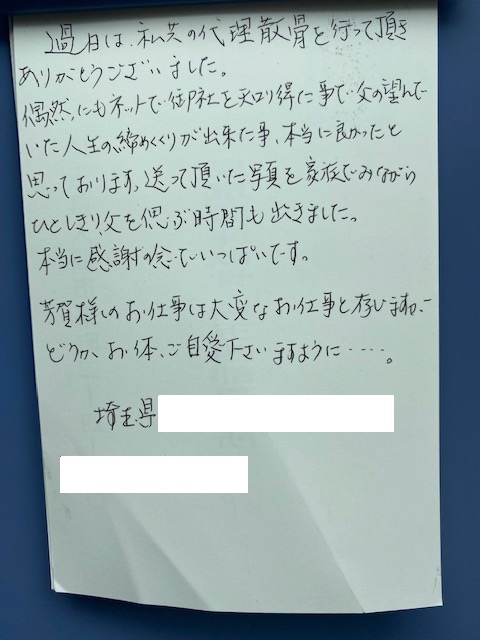 過日は、私共の代理散骨を行って頂き
ありがとうございました。
偶然にもネットで御社を知り得た事で父の望んで
いた人生の締めくくりが出来た事、本当に良かったと
思っております。送って頂いた写真を家族でみながら
ひとしきり父を偲ぶ時間も出きました。
本当に感謝の念でいっぱいです。
芳賀様のお仕事は大変なお仕事と存じますが
どうか、お体、ご自愛下さいますように……。
埼玉県